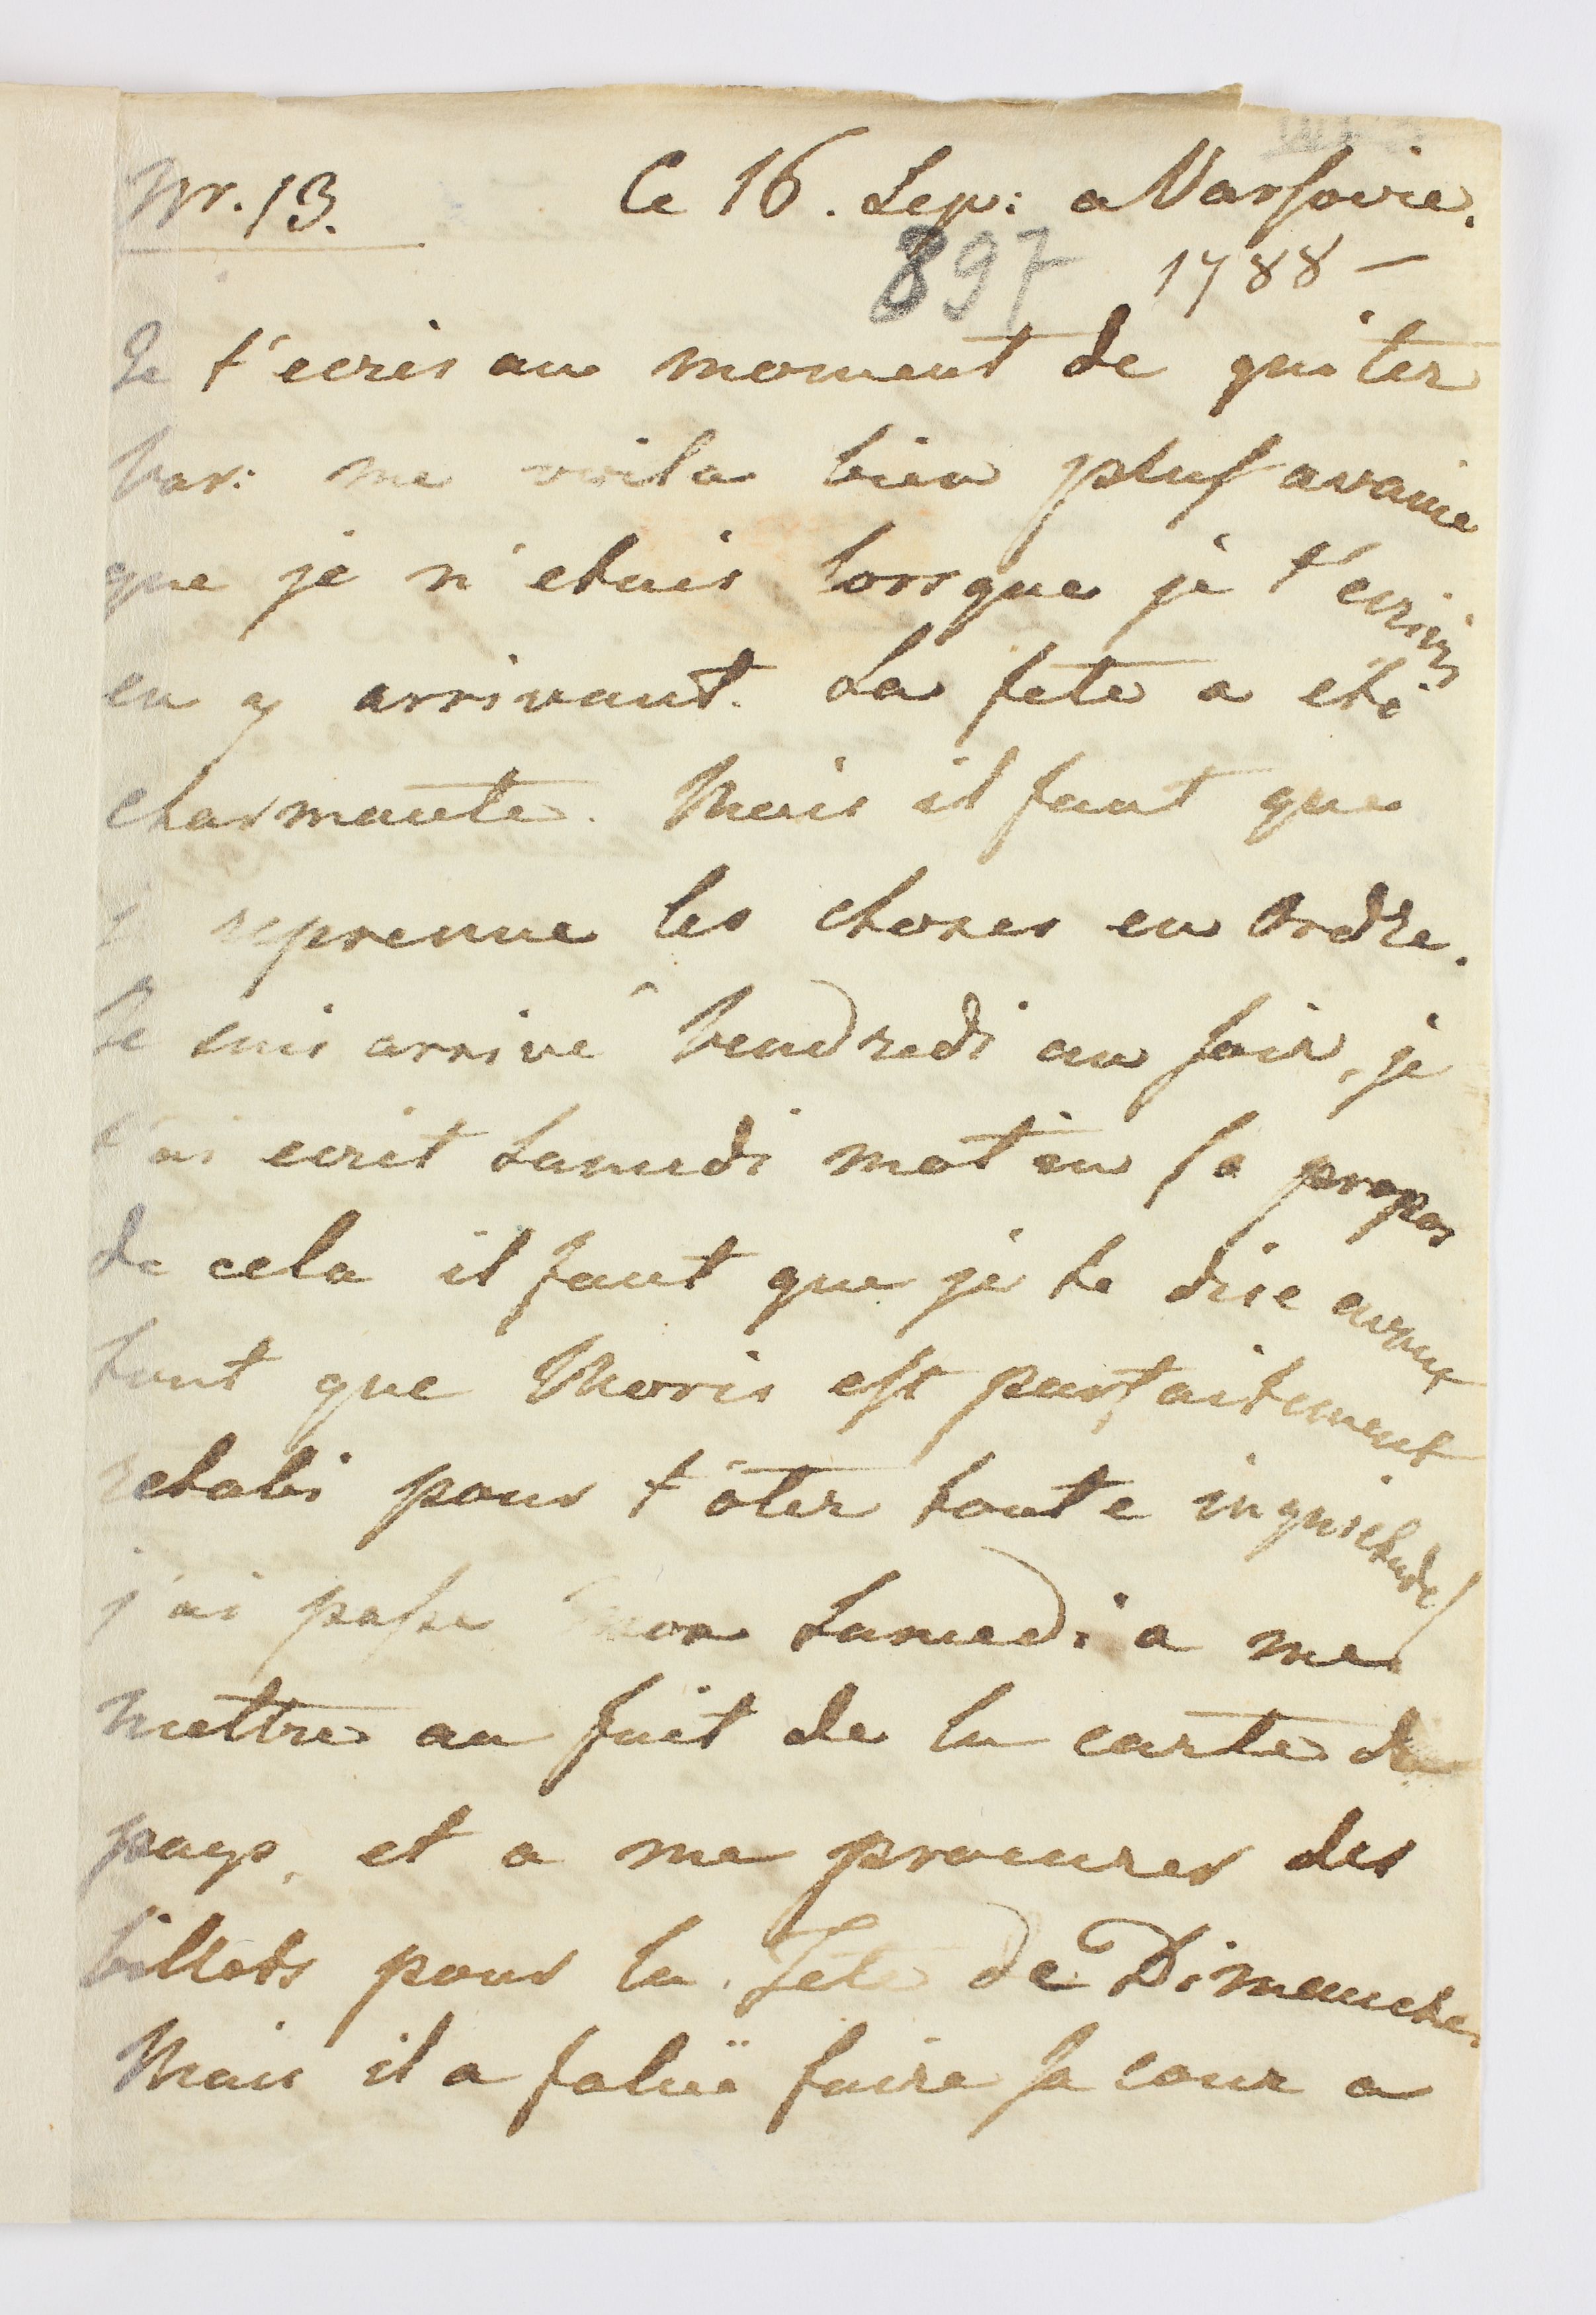 Nr. 13. Ce 16. Sep: a Varsovie.
897 1788 —
Je t'ecris au moment de quiter
Var: me voila bien plus avancé
que je n'etais lorsque je t'ecrivis
en y arrivant. La fete a eté
charmante. Mais il faut que
je reprenne les choses en Ordre.
Je suis arrivé Vendredi au soir, je
t'ai ecrit Samedi matin (a propos
de cela il faut que je te dise avant
tout que Moris est parfaitement
retabi pour t'ôter toute inquietude)
j'ai passe mon Samedi a me
mettre au fait de la carte du
pays, et a me procurer des
billets pour la Fete de Dimanche.
Mais il a faluë faire sa cour a